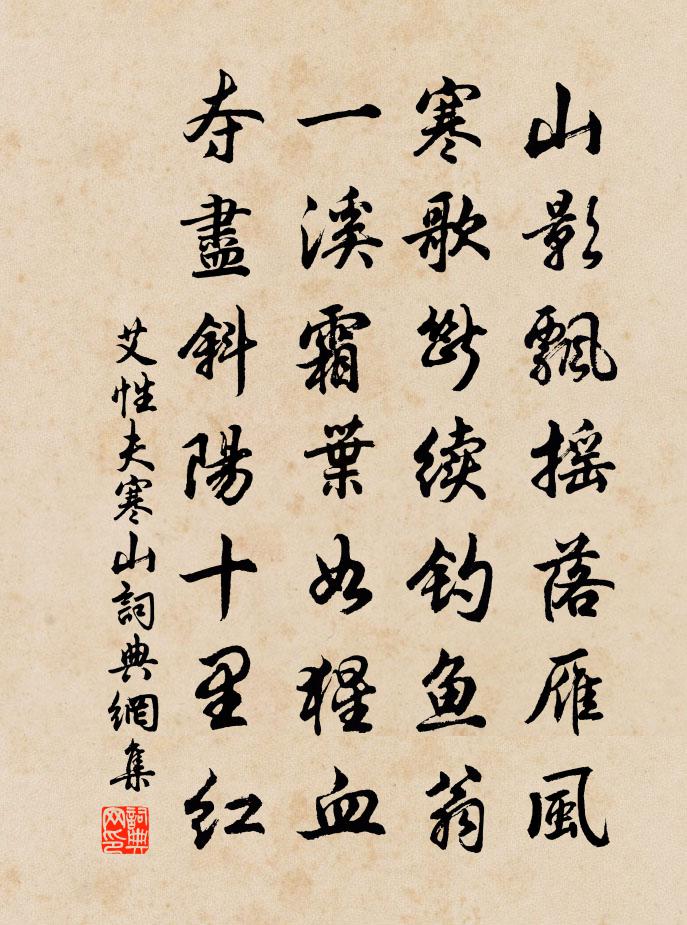 山影飄摇落雁風
寒歌断續釣魚翁
一溪霜葉如猩血
夺盡斜陽十里紅
艾性夫寒山詞典網集
詞典网印